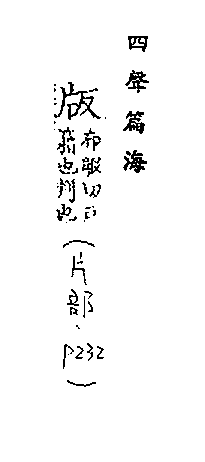 四聲篇海
版
布
切
也判也
(片部、P232)